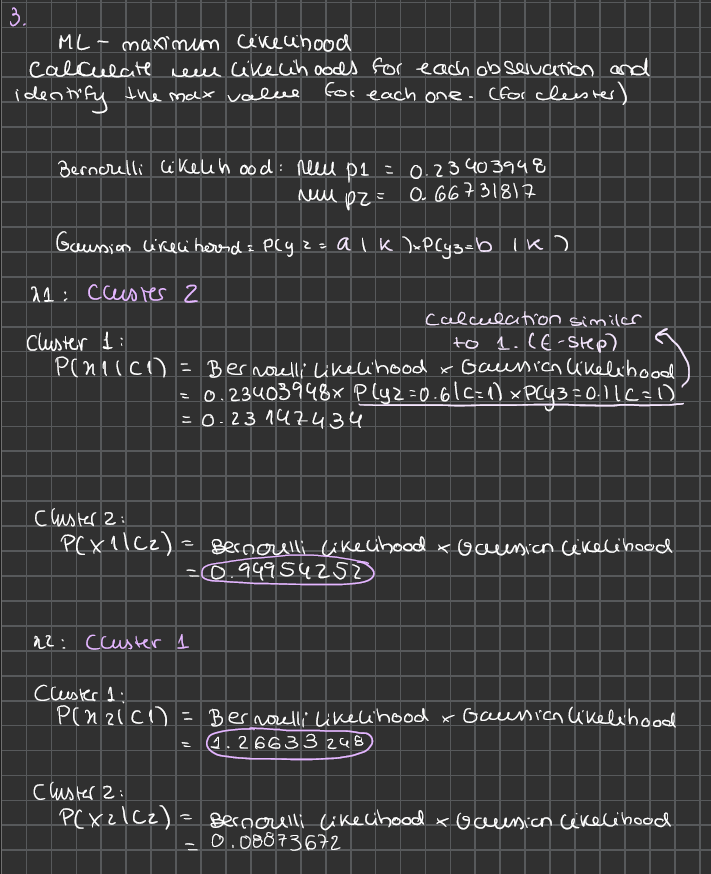 3.
ML - maximum likelihood
Calculate new likelihoods for each observation and
identify the max value for each one. (for cluster)
Bernoulli likelihood: new p1 = 0.23403948
new p2 = 0.66731817
Gaussian likelihood = P(y2 = a | k) x P(y3 = b | k)
x1: Cluster 2
calculation similar
to 1. (E-step)
Cluster 1:
P(x1|C1) = Bernoulli likelihood x Gaussian likelihood
= 0.23403948 x P(y2=0.6|C=1) x P(y3=0.1|C=1)
= 0.23147434
Cluster 2:
P(x1|C2) = Bernoulli likelihood x Gaussian likelihood
= 0.94954252
x2: Cluster 1
Cluster 1:
P(x2|C1) = Bernoulli likelihood x Gaussian likelihood
= 1.26633248
Cluster 2:
P(x2|C2) = Bernoulli likelihood x Gaussian likelihood
= 0.08873672